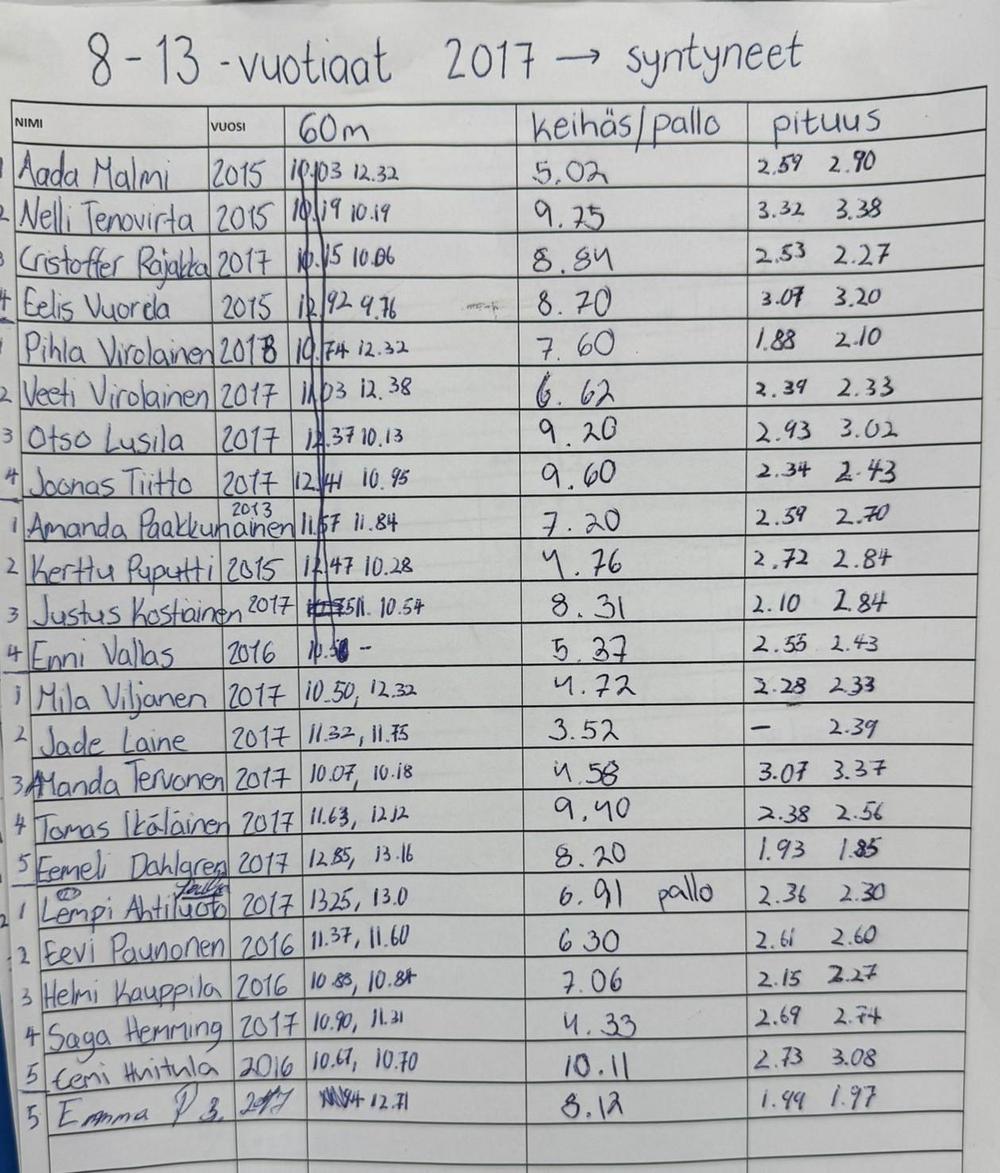 8-13-vuotiaat 2017 → syntyneet
NIMI VUOSI 60m keihäs/pallo pituus
1 Aada Malmi 2015 10.03 12.32 5.02 2.59 2.90
2 Nelli Tenovirta 2015 10.19 10.19 9.75 3.32 3.38
3 Cristoffer Rajakka 2017 10.15 10.06 8.84 2.53 2.27
4 Eelis Vuorela 2015 12.92 9.76 8.70 3.07 3.20
1 Pihla Virolainen 2018 10.74 12.32 7.60 1.88 2.10
2 Veeti Virolainen 2017 11.03 12.38 6.62 2.39 2.33
3 Otso Lusila 2017 12.37 10.13 9.20 2.93 3.02
4 Joonas Tiitto 2017 12.41 10.95 9.60 2.34 2.43
1 Amanda Paakkunainen 2013 11.57 11.84 7.20 2.59 2.70
2 Kerttu Puputti 2015 12.47 10.28 4.76 2.72 2.84
3 Justus Kostiainen 2017 10.54 8.31 2.10 2.84
4 Enni Vallas 2016 - 5.37 2.55 2.43
1 Mila Viljanen 2017 10.50, 12.32 4.72 2.28 2.33
2 Jade Laine 2017 11.32, 11.75 3.52 - 2.39
3 Amanda Tervonen 2017 10.07, 10.18 4.58 3.07 3.37
4 Tomas Ikäläinen 2017 11.63, 12.12 9.40 2.38 2.56
5 Eemeli Dahlgren 2017 12.85, 13.16 8.20 1.93 1.85
1 Lempi Ahtiluoto 2017 1325, 13.0 6.91 pallo 2.36 2.30
2 Eevi Paunonen 2016 11.37, 11.60 6 30 2.61 2.60
3 Helmi Kauppila 2016 10.83, 10.84 7.06 2.15 2.27
4 Saga Hemming 2017 10.90, 11.31 4.33 2.69 2.74
5 Huitula 2016 10.67, 10.70 10.11 2.73 3.08
5 Emma P 3. 2017 12.71 8.12 1.99 1.97